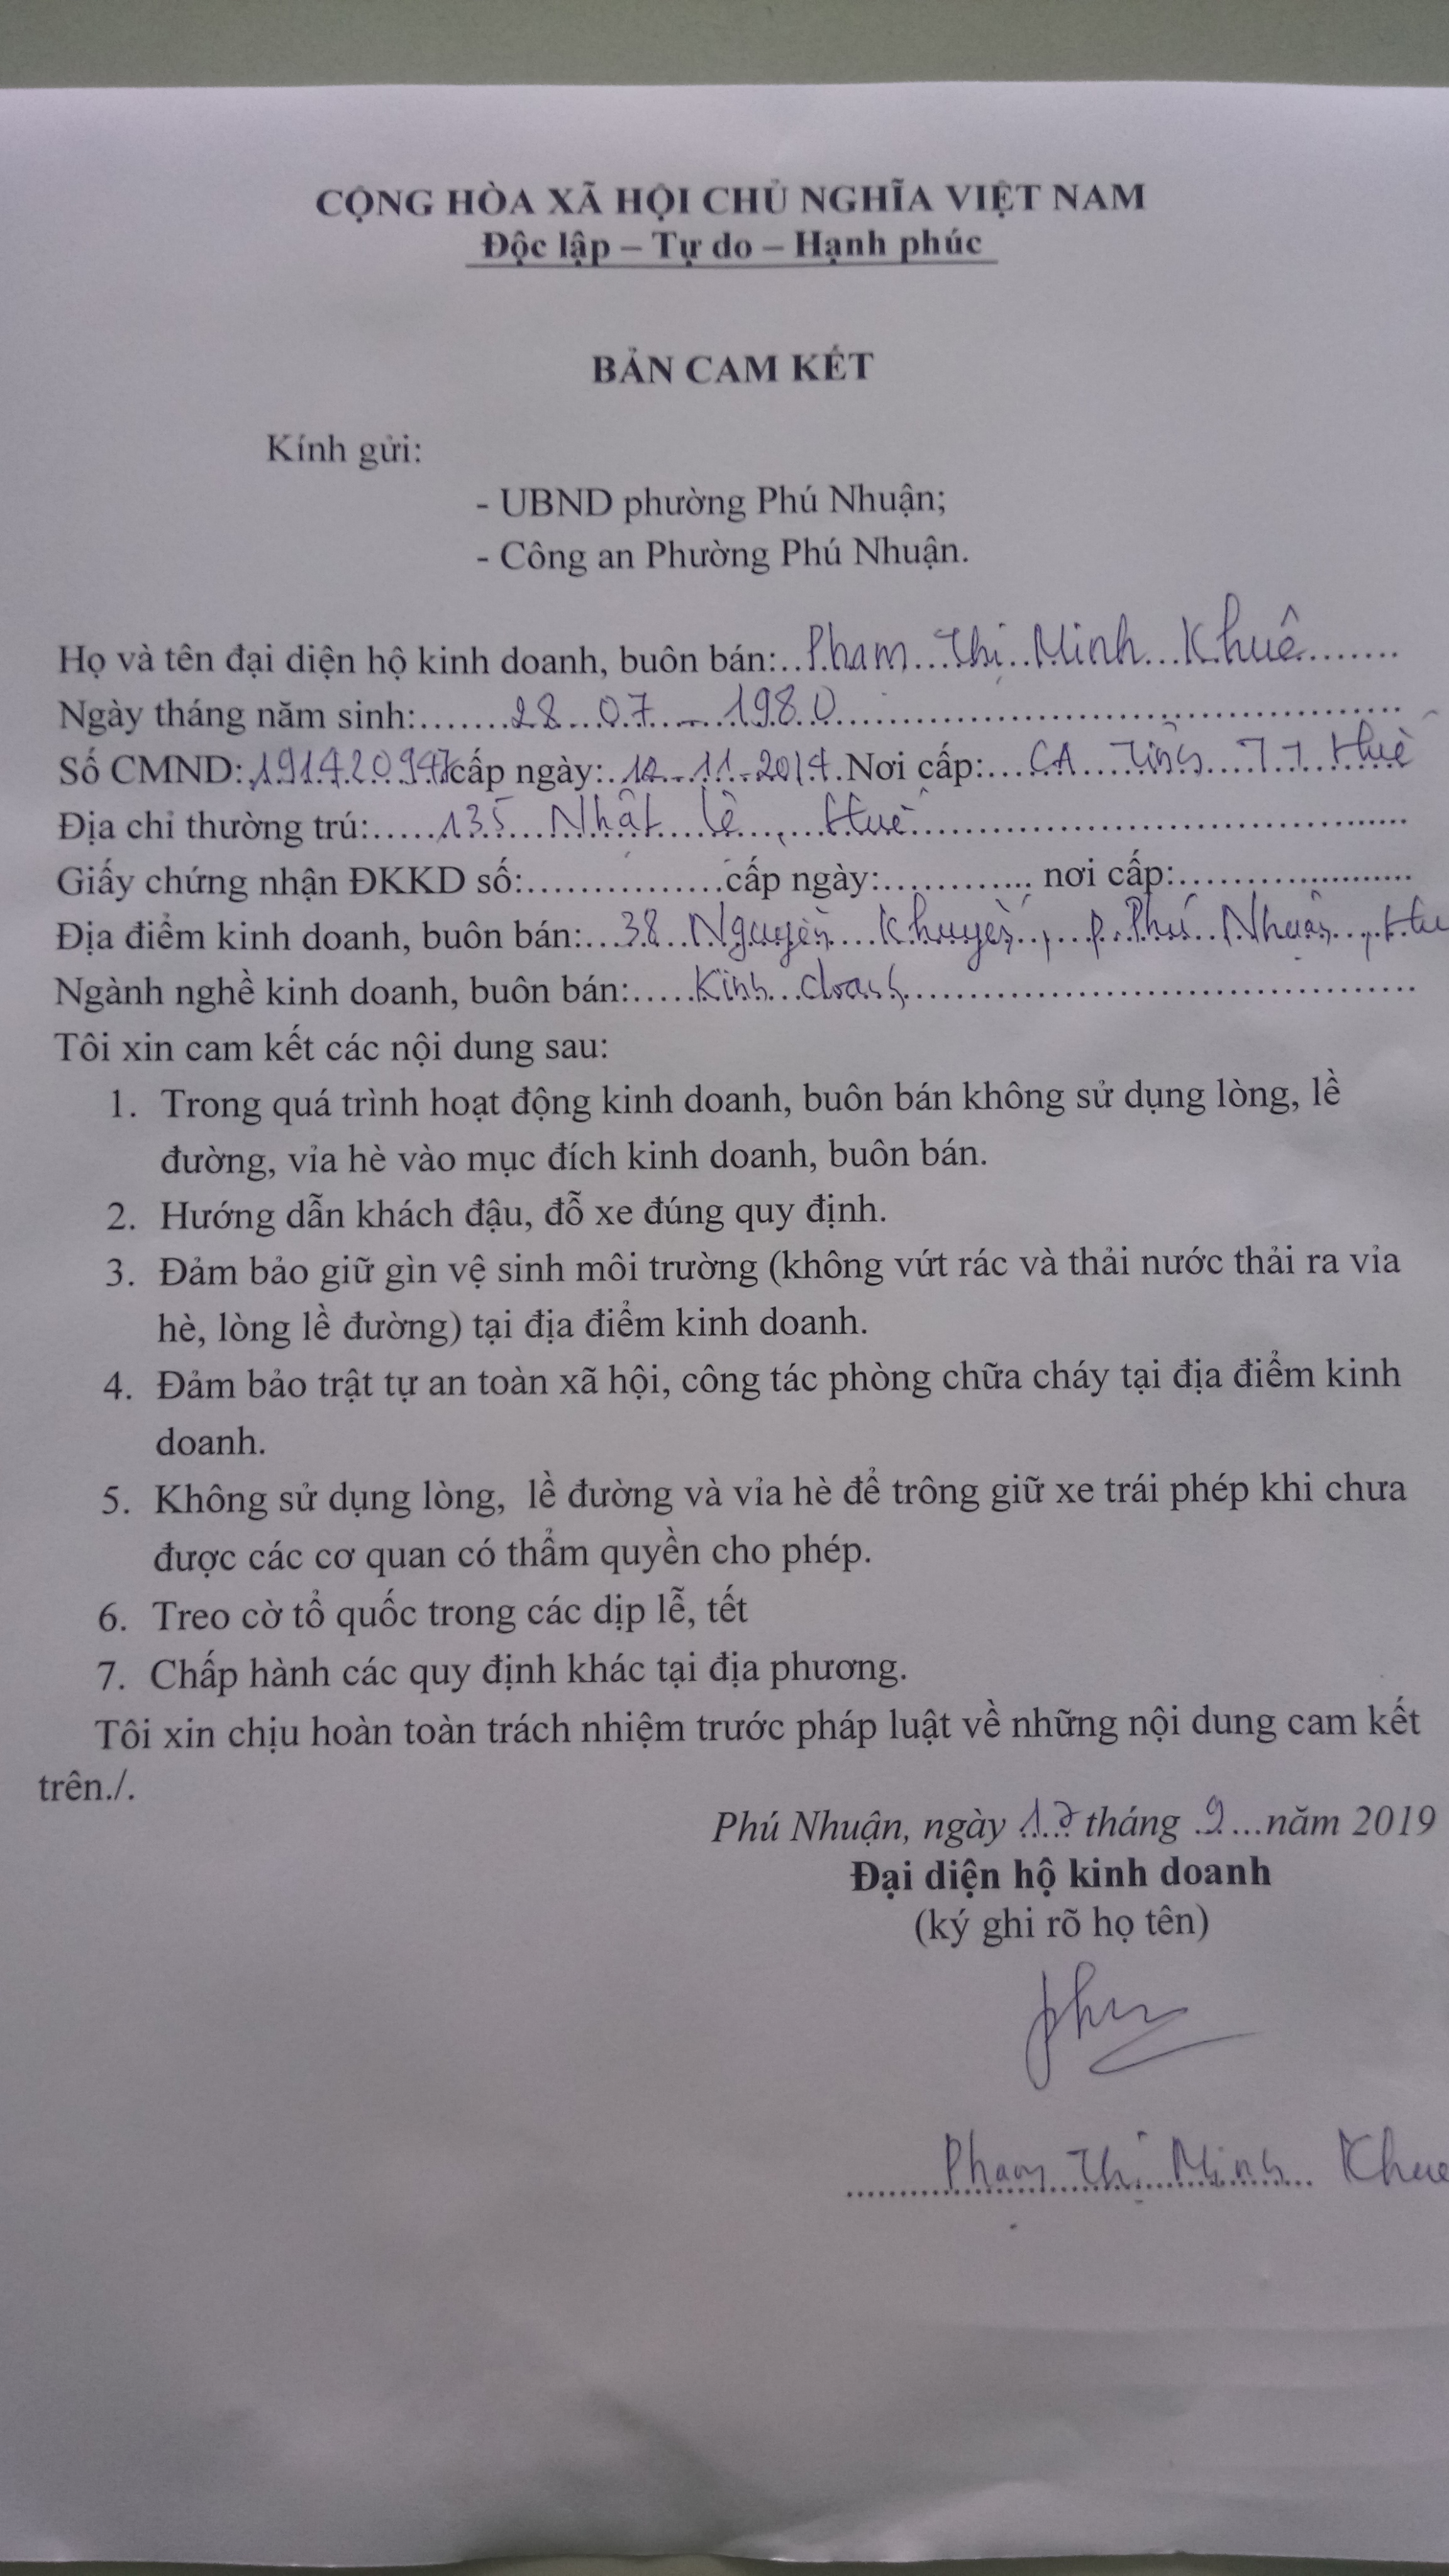 CỘNG HÒA XÃ HỘI CHỦ NGHĨA VIỆT NAM
Độc lập – Tự do – Hạnh phúc
BẢN CAM KẾT
Kính gửi:
- UBND phường Phú Nhuận;
- Công an Phường Phú Nhuận.
Họ và tên đại diện hộ kinh doanh, buôn bán:..Phạm...Thị..Minh...Khuê........
Ngày tháng năm sinh:.......28...07...-...1980..........................................
Số CMND: cấp ngày:..-11-2014.Nơi cấp:...CA....Tỉnh....TT.Huế
Địa chỉ thường trú:.....135...Nhật...Lệ..,...Huế..............................
Giấy chứng nhận ĐKKD số:................cấp ngày:............ nơi cấp:.....................
Địa điểm kinh doanh, buôn bán:...38..Nguyễn...Khuyến.,...p.Phú..Nhuận..,Hu
Ngành nghề kinh doanh, buôn bán:.....Kinh..doanh.......................................
Tôi xin cam kết các nội dung sau:
1. Trong quá trình hoạt động kinh doanh, buôn bán không sử dụng lòng, lề
đường, vỉa hè vào mục đích kinh doanh, buôn bán.
2. Hướng dẫn khách đậu, đỗ xe đúng quy định.
3. Đảm bảo giữ gìn vệ sinh môi trường (không vứt rác và thải nước thải ra vỉa
hè, lòng lề đường) tại địa điểm kinh doanh.
4. Đảm bảo trật tự an toàn xã hội, công tác phòng chữa cháy tại địa điểm kinh
doanh.
5. Không sử dụng lòng, lề đường và vỉa hè để trông giữ xe trái phép khi chưa
được các cơ quan có thẩm quyền cho phép.
6. Treo cờ tổ quốc trong các dịp lễ, tết
7. Chấp hành các quy định khác tại địa phương.
Tôi xin chịu hoàn toàn trách nhiệm trước pháp luật về những nội dung cam kết
trên./.
Phú Nhuận, ngày 17 tháng .9...năm 2019
Đại diện hộ kinh doanh
(ký ghi rõ họ tên)
Phạm Thị Minh Khuê